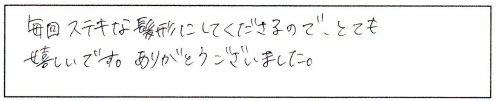 毎回ステキな髪形にしてくださるので、とても
嬉しいです。ありがとうございました。